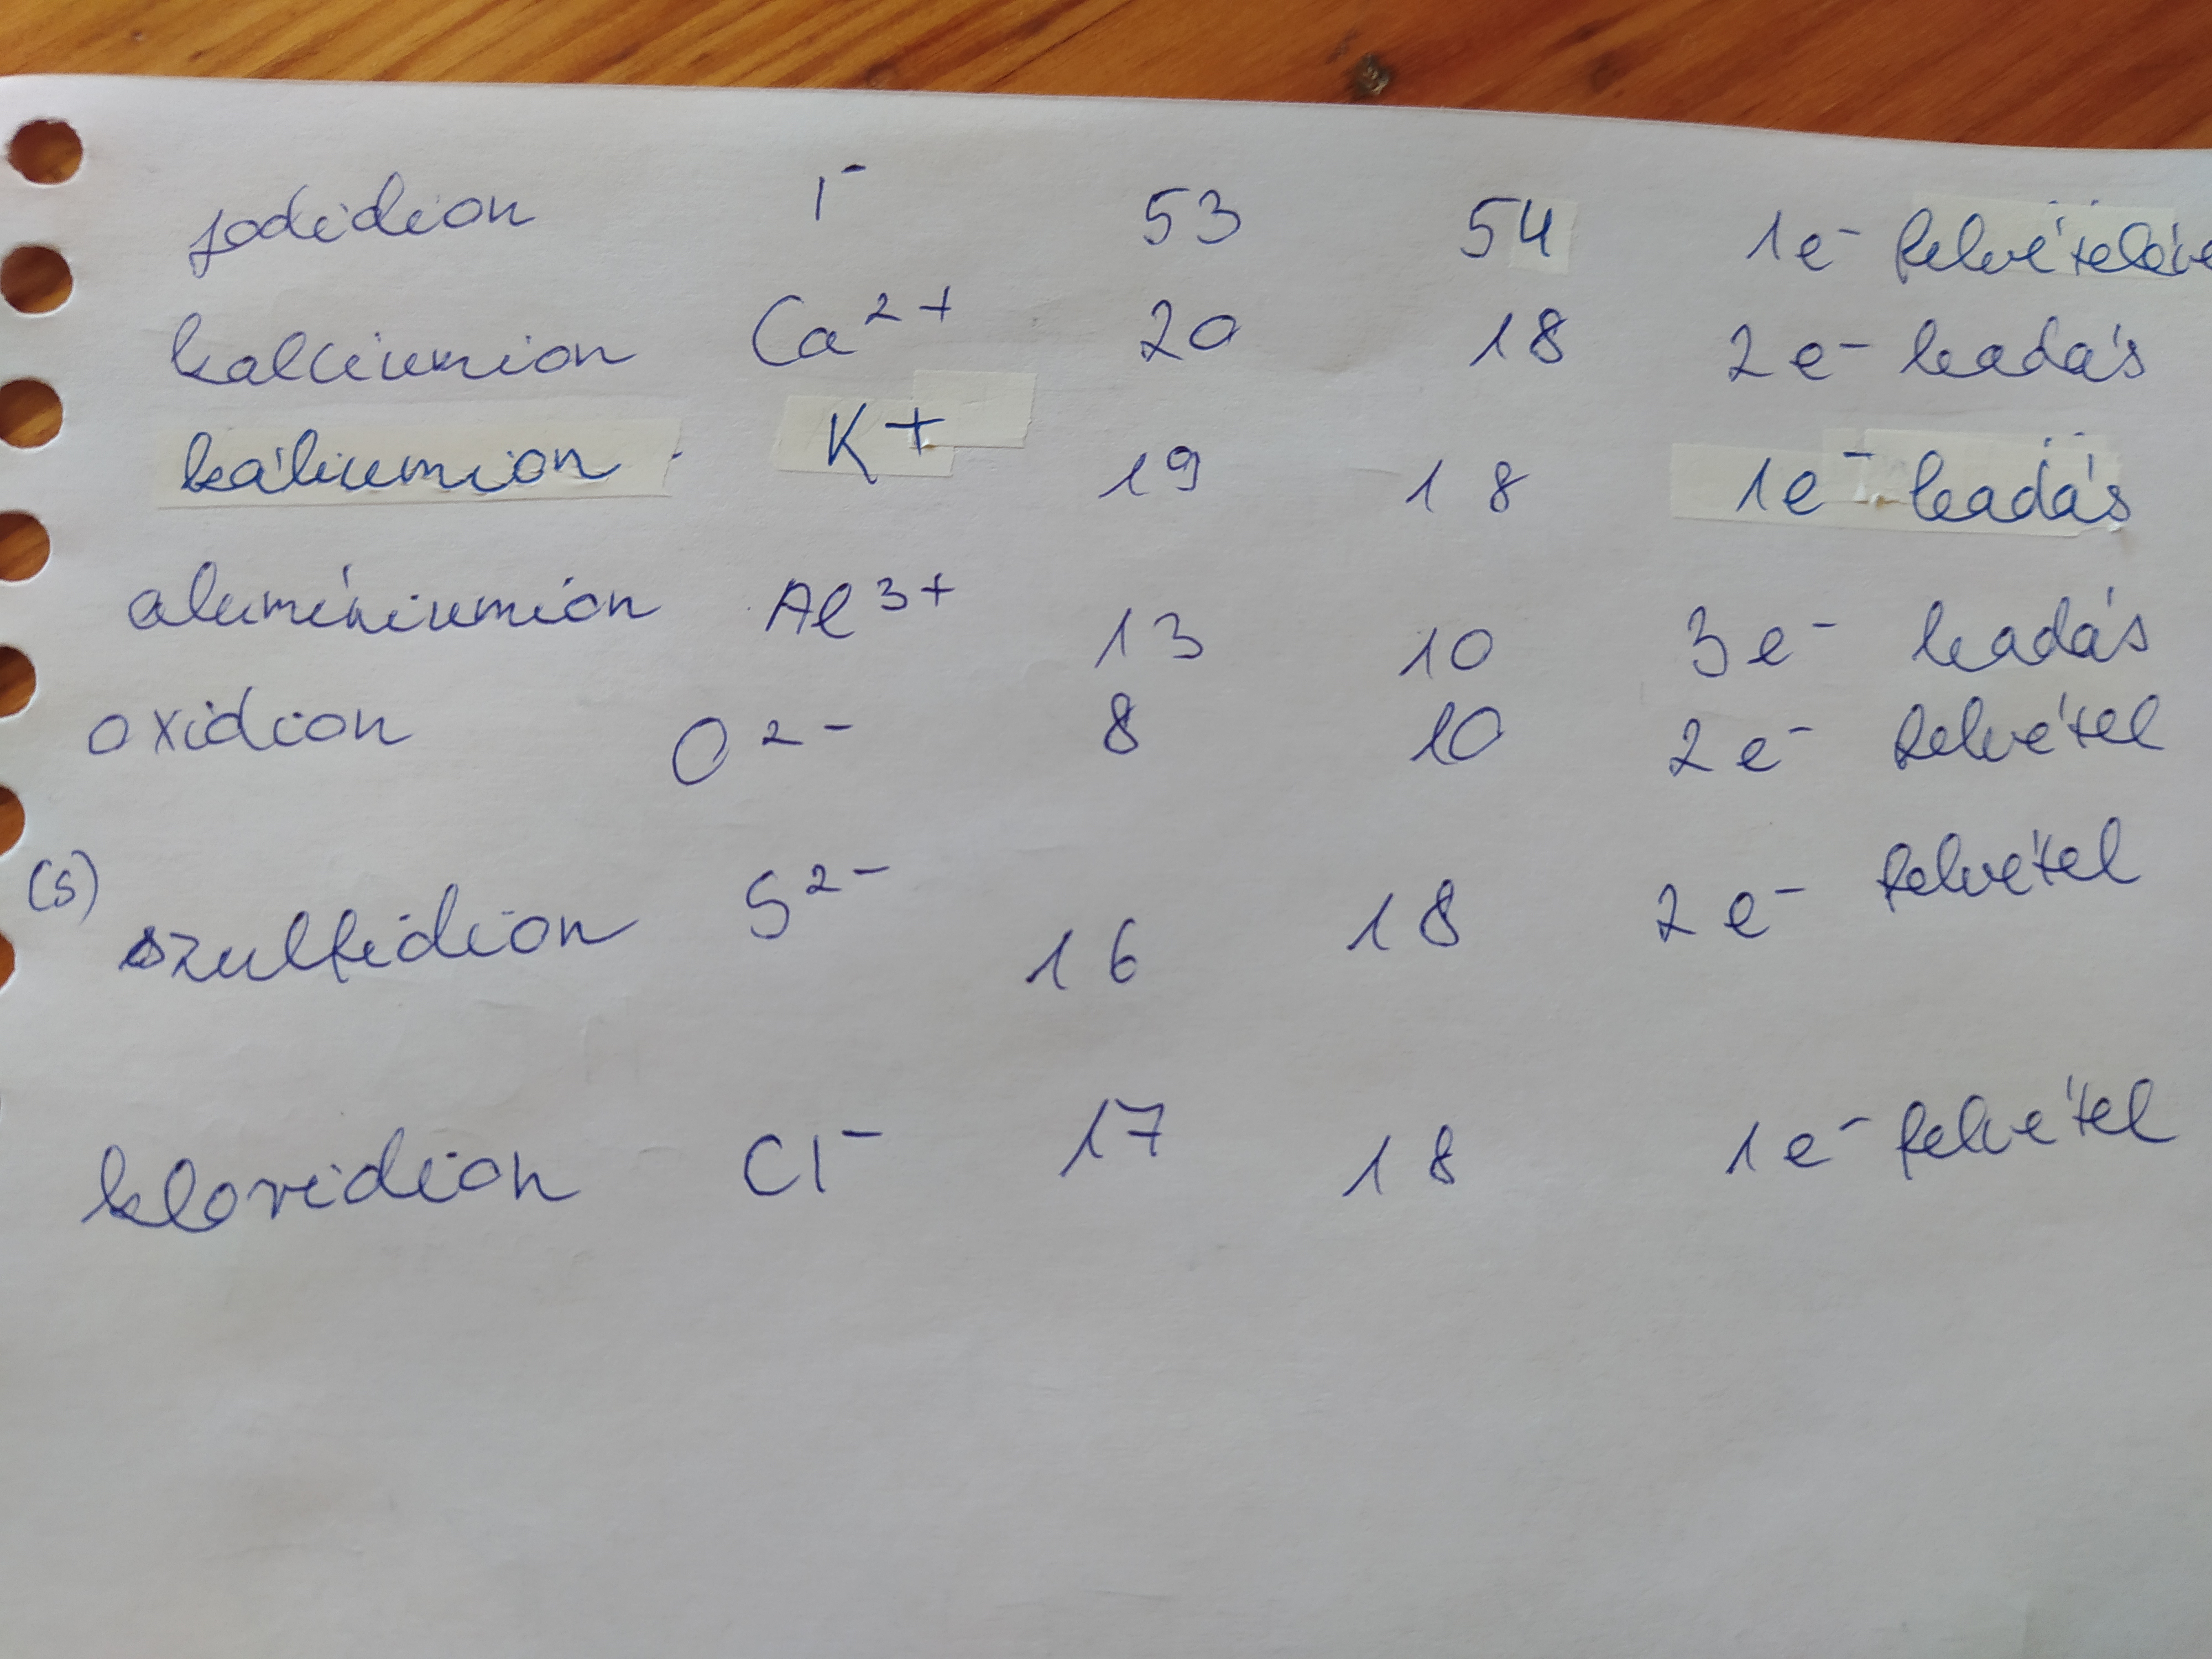 jodidion I⁻ 53 54 1e⁻ felvételével
kalciumion Ca²⁺ 20 18 2e⁻ leadás
káliumion K⁺ 19 18 1e⁻ leadás
alumíniumion Al³⁺ 13 10 3e⁻ leadás
oxidion O²⁻ 8 10 2e⁻ felvétel
(s) szulfidion S²⁻ 16 18 2e⁻ felvétel
kloridion Cl⁻ 17 18 1e⁻ felvétel